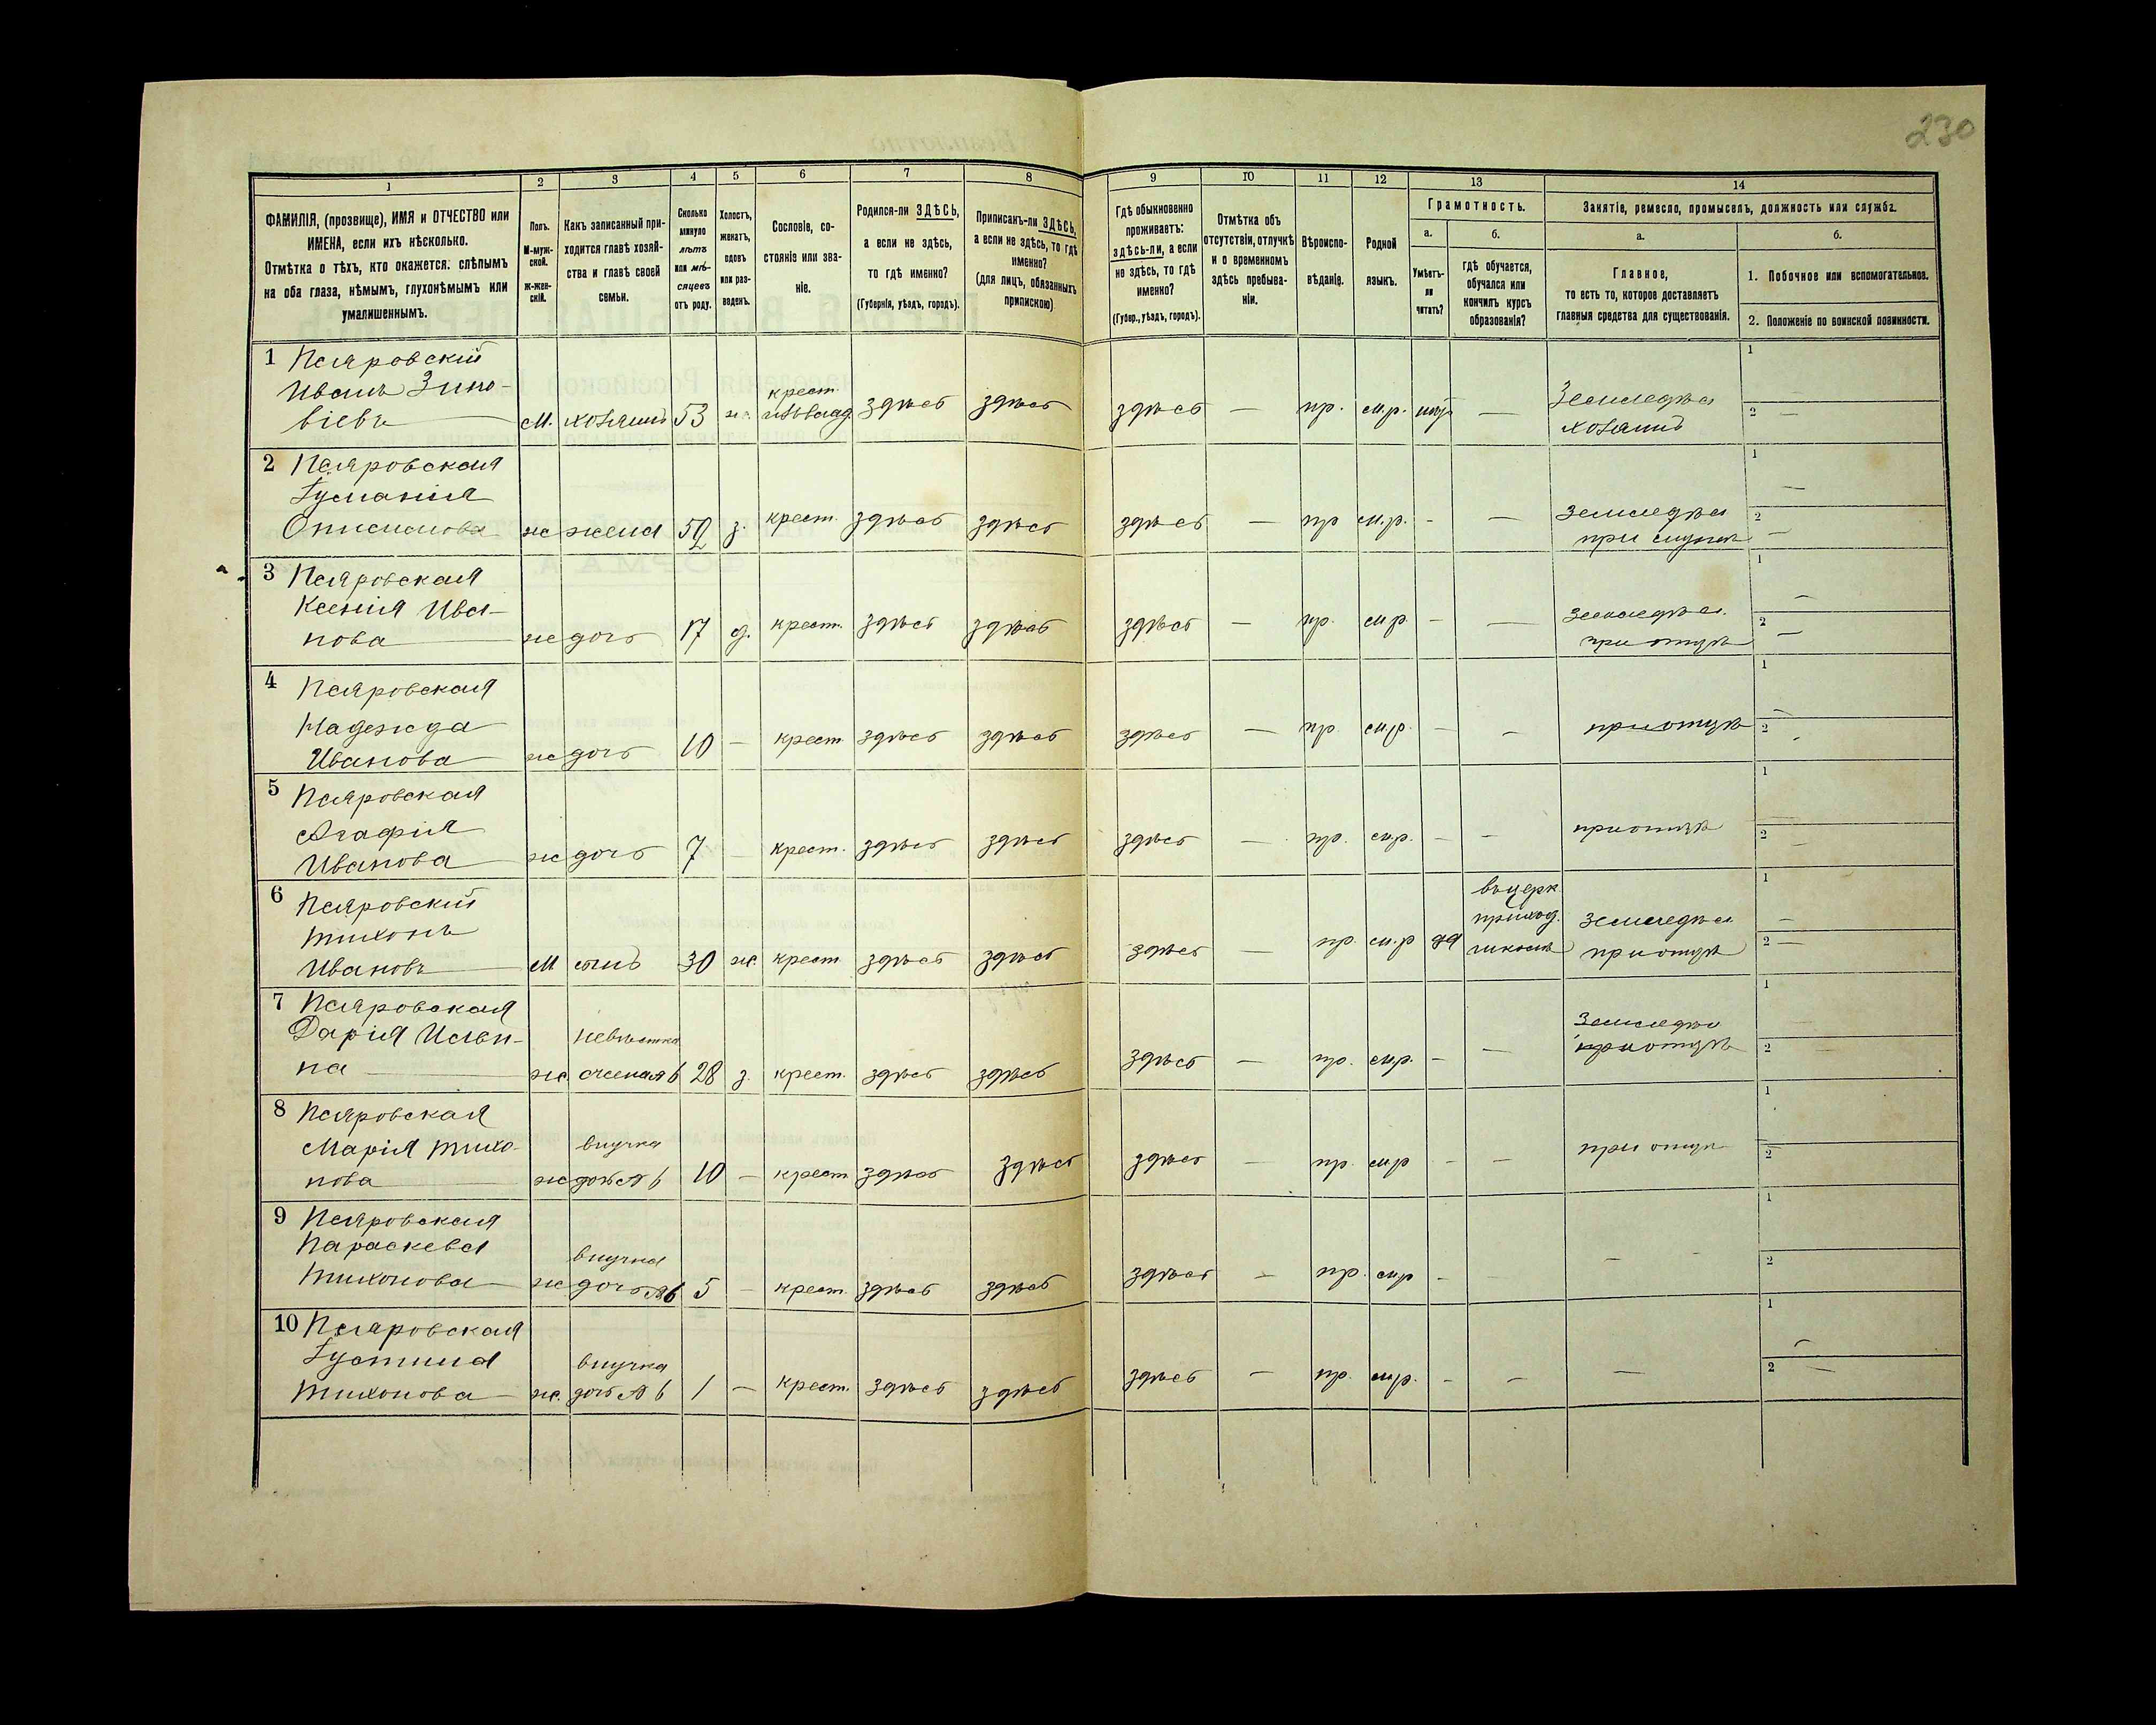 230
1
2
3
4
5
6
7
8
9
10
11
12
13
14
ФАМИЛІЯ, (прозвище), ИМЯ и ОТЧЕСТВО или
ИМЕНА, если ихъ нѣсколько.
Отмѣтка о тѣхъ, кто окажется: слѣпымъ
на оба глаза, нѣмымъ, глухонѣмымъ или
умалишеннымъ.
Полъ.
М-муж-
ской.
ж-жен-
скій.
Какъ записанный при-
ходится главѣ хозяй-
ства и главѣ своей
семьи.
Сколько
минуло
лѣтъ
или мѣ-
сяцевъ
отъ роду.
Холостъ,
женатъ,
вдовъ
или раз-
веденъ.
Сословіе, со-
стояніе или зва-
ніе.
Родился-ли ЗДѢСЬ,
а если не здѣсь,
то гдѣ именно?
(Губернія, уѣздъ, городъ).
Приписанъ-ли ЗДѢСЬ,
а если не здѣсь, то гдѣ
именно?
(для лицъ, обязанныхъ
припискою)
Гдѣ обыкновенно
проживаетъ:
здѣсь-ли, а если
не здѣсь, то гдѣ
именно?
(Губер., уѣздъ, городъ).
Отмѣтка объ
отсутствіи, отлучкѣ
и о временномъ
здѣсь пребыва-
ніи.
Вѣроиспо-
вѣданіе.
Родной
языкъ.
Грамотность.
а.
Умѣетъ-
ли
читать?
б.
гдѣ обучается,
обучался или
кончилъ курсъ
образованія?
Занятіе, ремесло, промыселъ, должность или служба.
а.
Главное,
то есть то, которое доставляетъ
главныя средства для существованія.
б.
1. Побочное или вспомогательное.
2. Положеніе по воинской повинности.
1
Иванъ Зино-
віевъ
М. хозяинъ 53 ж. крест. здѣсь здѣсь здѣсь — пр. м.р. —
хозяинъ
1
2 —
2
жс жена 52 з. крест. здѣсь здѣсь здѣсь — пр м.р. - —
при
1 —
2 —
3
Ксенія Ива-
нова
жс дочь 17 д. крест. здѣсь здѣсь здѣсь — пр. м.р - —
при отцѣ
1 —
2 —
4
Надежда
Иванова
жс дочь 10 — крест здѣсь здѣсь здѣсь — пр м.р. - -
при отцѣ
1 —
2
5
Агафія
Иванова
жс дочь 7 — крест. здѣсь здѣсь здѣсь — пр. м.р. - -
при отцѣ
1
2 —
6
Тихонъ
Ивановъ
М сынъ 30 ж. крест здѣсь здѣсь здѣсь — пр. м.р да
въ церк.
приход.
школѣ
при отцѣ
1 —
2 —
7
Дарія Ильи-
на
невѣстка
жс жена № 6 28 з. крест. здѣсь здѣсь здѣсь — пр. м.р. - —
при отцѣ
1
2
8
Марія Тихо-
нова
внучка
жс дочь № 6 10 — крест здѣсь здѣсь здѣсь — пр м.р - -
при отцѣ
1
2
9
Параскева
Тихонова
внучка
жс дочь № 6 5 — крест. здѣсь здѣсь здѣсь — пр. м.р -
1
2
10
Тихонова
внучка
жс. дочь № 6 1 — крест. здѣсь здѣсь здѣсь — пр. м.р. - - —
1 —
2 —